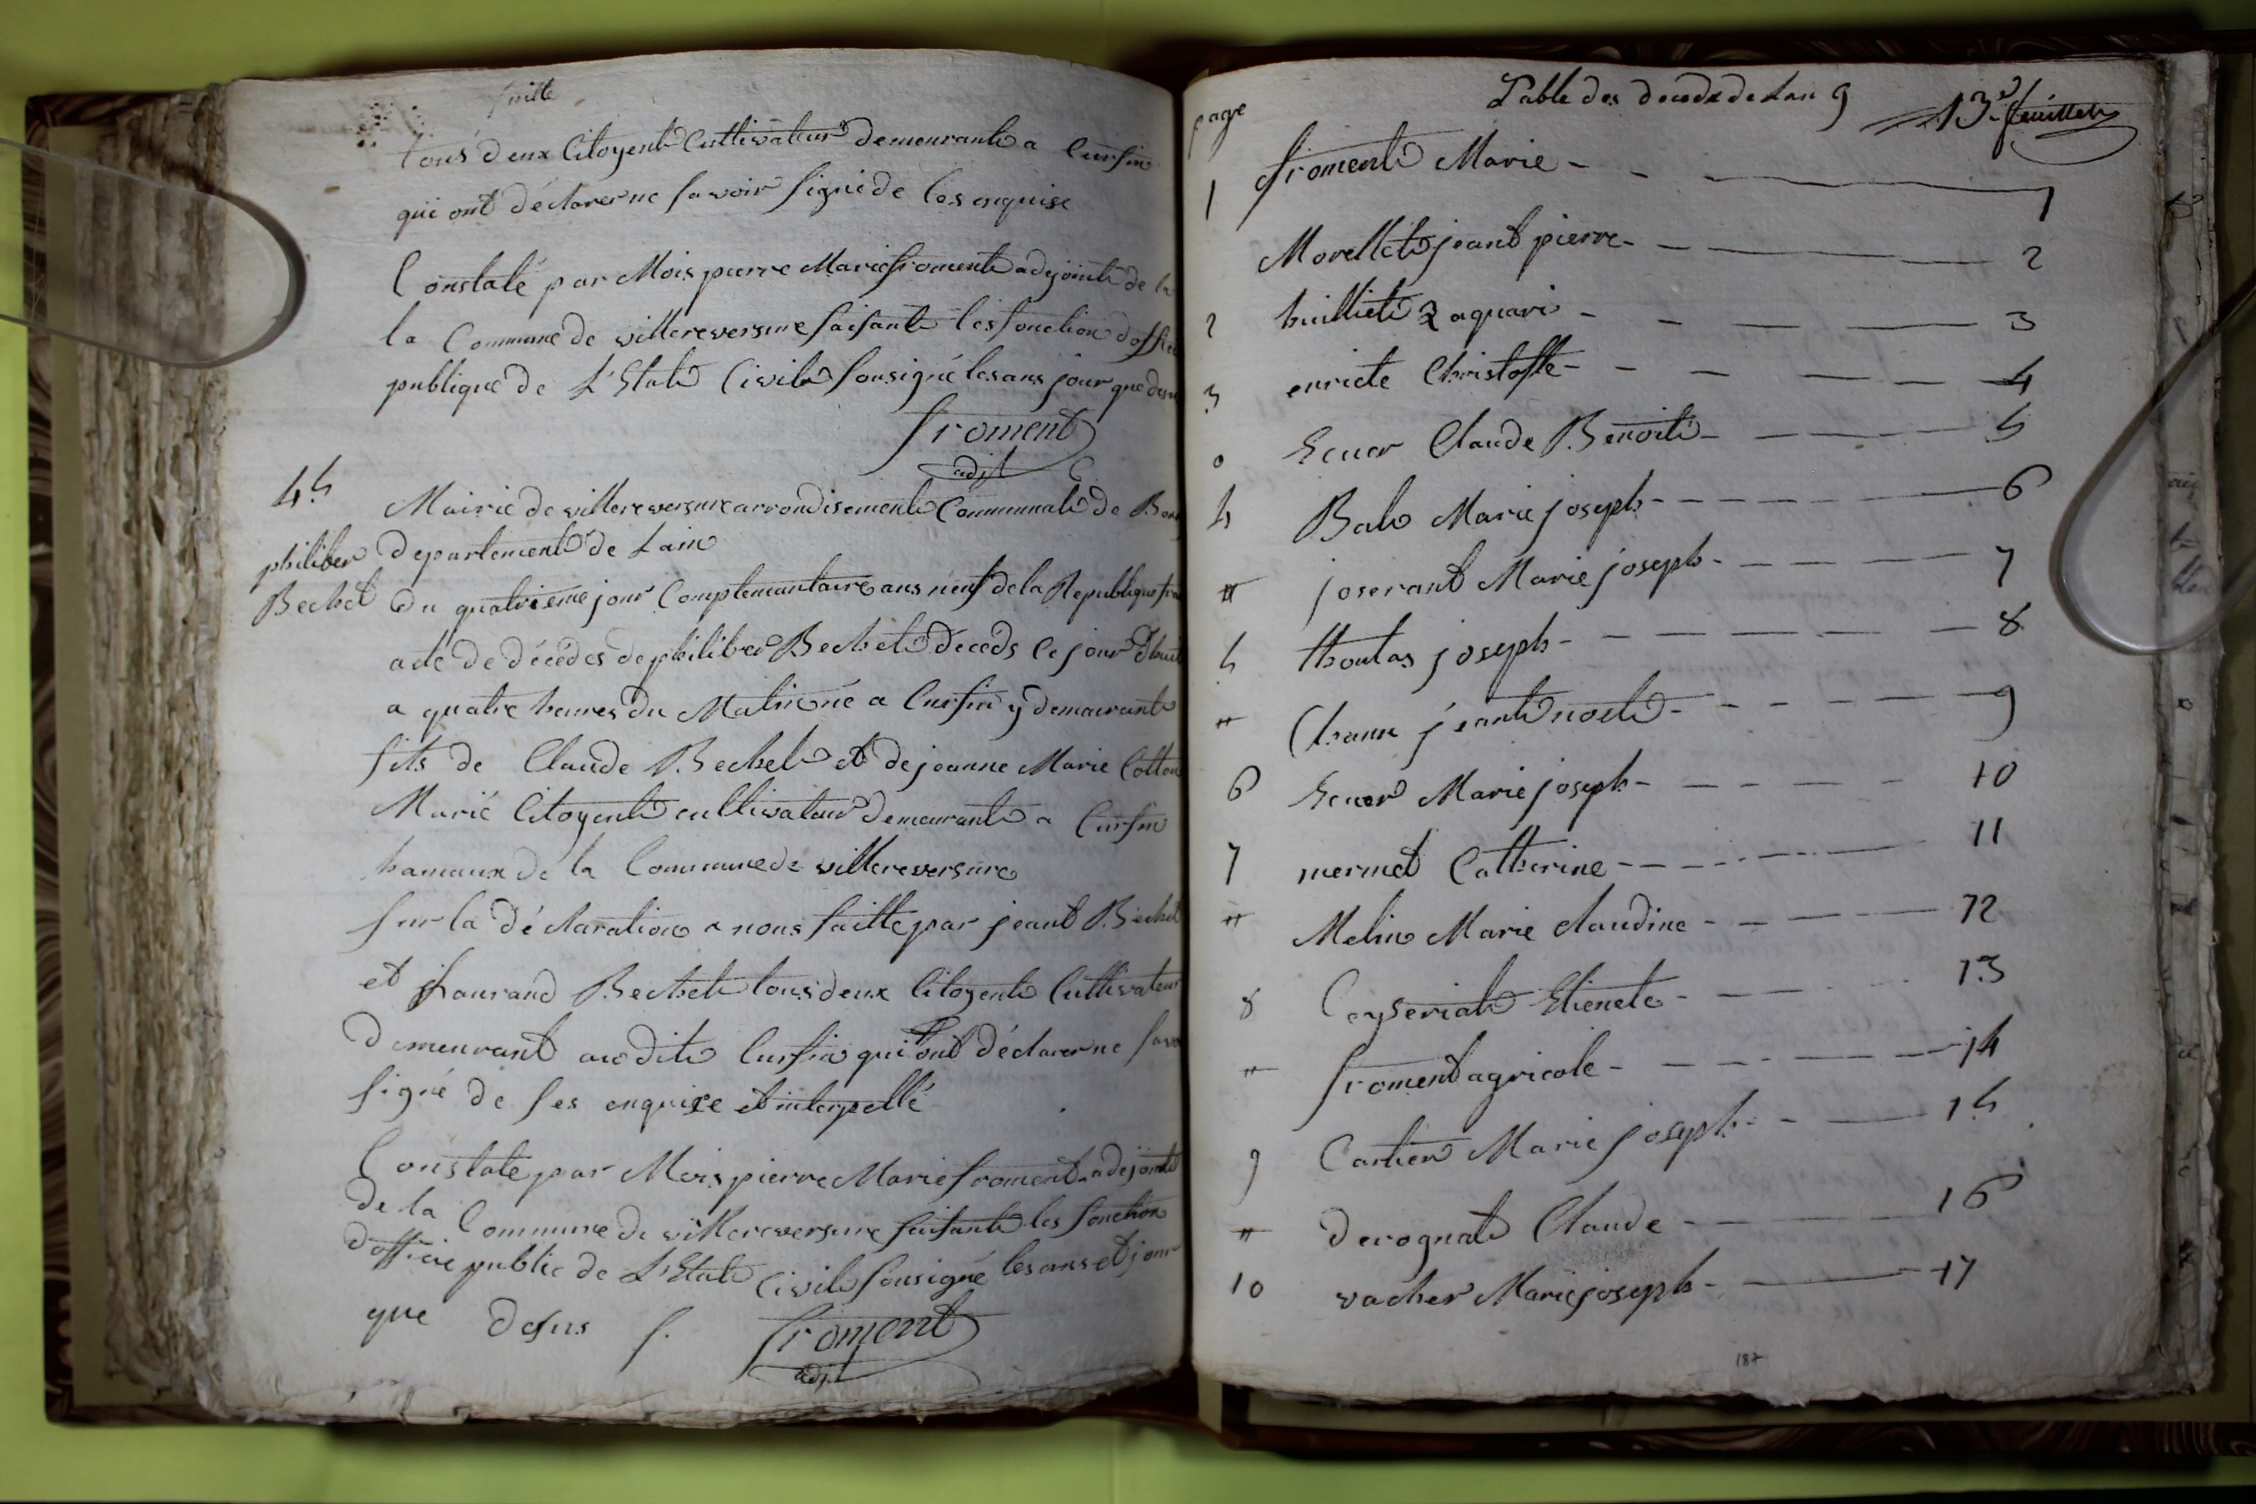 suitte
tous deux Citoyent Cultivateur demeurante a Cursin
qui ont déclarer ne savoir signé de ces enquise
Constaté par Mois pierre Marie fromente adejointe de la
la Commune de villereversure faisante les fonction doffici
publique de L'État Civile Sousigné les ans jour que desu
froment
adjt
45
Mairie de villereversure arrondisemente Communale de Bour
philiber departement de Lain
Bechet du quatrieme jour Complementaire ans neuf de la Republique fra
acte de décédes de philiber Bechet décéds ce jour dhuit
a quatre heures du Matin né a Cursin y demeurante
fils de Claude Bechet et de jeanne Marie Cotton
Marié Citoyente cultivateur demeurante a Cursin
hameaux de la Commune de villereversure
sur la déclaration a nous faitte par jeant Bechet
et Laurand Bechet tous deux Citoyente Cultivateur
demeurant audite Cursin qui ont déclarer ne savo
signé de ses enquire et interpellé
Constate par Mois pierre Marie froment adejointe
de la Commune de villereversure faisante les fonction
dofficie public de L'État Civile Sousigné les ans et jour
que desus
froment
adjt
page Table des décéde de Lan 9 13e feuillets
1 fromente Marie 1
Morellete jeant pierre 2
2 huilliete Zaquari 3
3 enriete Christofle 4
0 Ecuer Claude Benoite 5
5 Balo Marie joseph 6
" joserant Marie joseph 7
5 thoulas joseph 8
" 9
6 Ecuer Marie joseph 10
7 mermet Catherine 11
" Melin Marie claudine 12
8 Ceyseriate Etienete 13
" froment agricole 14
9 Cartier Marie joseph 15
" derognate Claude 16
10 vacher Marie joseph 17
187